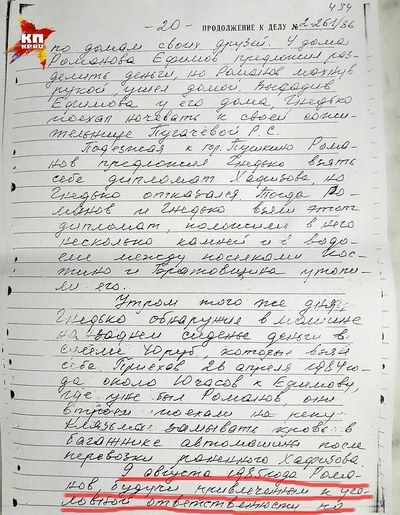 КП
KP.RU
434
- 20 - ПРОДОЛЖЕНИЕ К ДЕЛУ № 2-261/86
по домам своих друзей. У дома
Романова Ефимов предложил раз-
делить деньги, но Романов махнув
рукой, ушел домой. Высадив
Ефимова у его дома, Гнедько
поехал ночевать к своей сожи-
тельнице Пугачевой Р.С.
Подъезжая к гор. Пушкино Рома-
нов предложил Гнедько взять
себе дипломат Хафизова, но
Гнедько отказался. Тогда Ро-
манов и Гнедько взяли этот
дипломат, положили в него
несколько камней и в водо-
еме между поселками Кос-
тино и Братовщина утопи-
ли его.
Утром того же дня,
Гнедько обнаружив в машине
на заднем сиденье деньги в
сумме 40 руб, которые взял
себе. Приехав 26 апреля 1984 го-
да около 10 часов к Ефимову,
где уже был Романов они
втроем поехали на реку
Клязьма замывать кровь в
багажнике автомашины после
перевозки раненного Хафизова.
9 августа 1985 года Рома-
нов, будучи привлеченным к уго-
ловной ответственности по